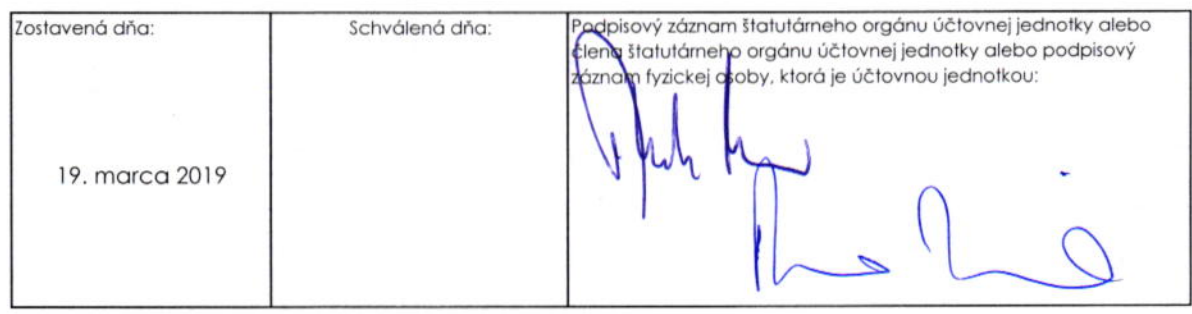 Zostavená dňa:
Schválená dňa:
Podpisový záznam štatutárneho orgánu účtovnej jednotky alebo
člena štatutárneho orgánu účtovnej jednotky alebo podpisový
záznam fyzickej osoby, ktorá je účtovnou jednotkou:
19. marca 2019